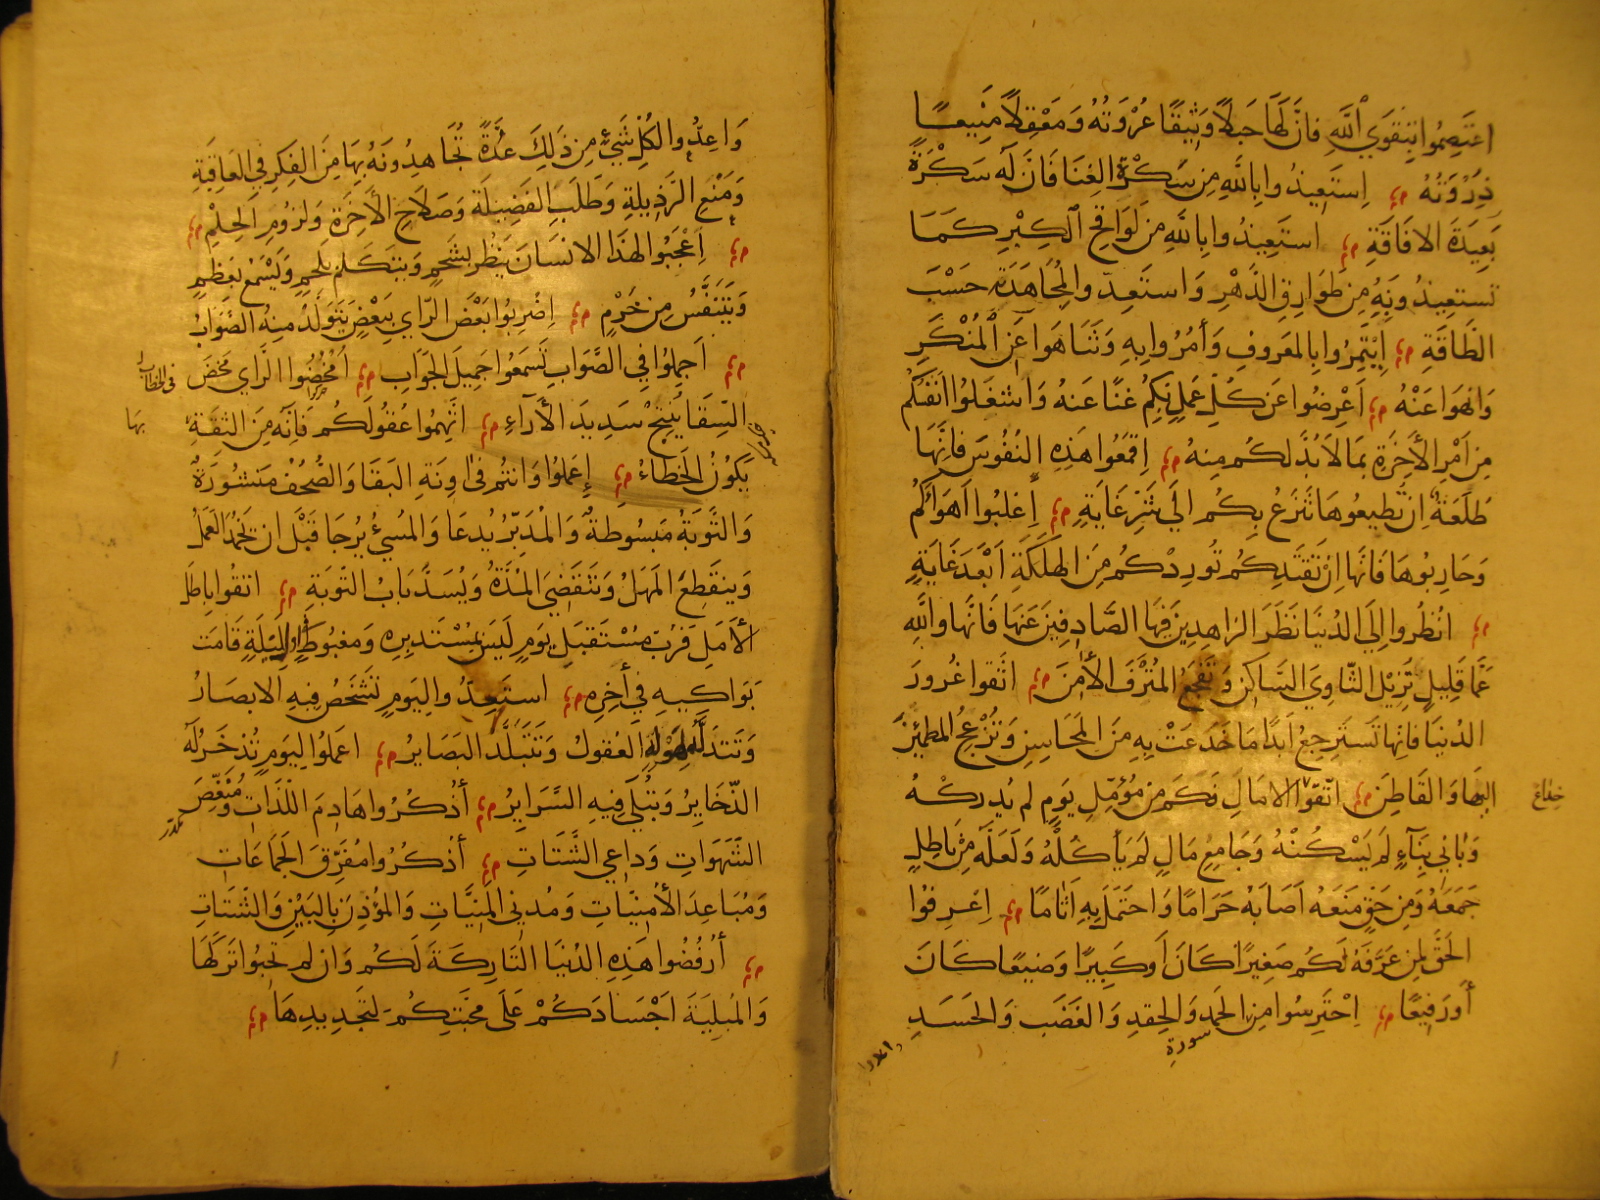 اعتَصِمُوا بِتَقوَي اللَّهِ فانَّ لَهَا حَبلاً وَثِيقًا عُرْوَتُهُ وَمَعْقِلاً مَنِيعًا
ذِرْوَتُهُ اِستَعِيذُوا بِاللهِ مِن سَكْرَةِ الغِنَا فَانَ لَهُ سَكْرَةً
بَعِيدَةَ الافَاقَةِ استَعِيذُوا بِاللهِ مِن لَوَاقِحِ الكِبْرِ كَمَا
تستَعِيذُونَهُ مِن طَوَارِقِ الدَّهْرِ وَاستَعِدّوا لِمُجَاهَدَتِهِ حَسْبَ
الطَاقَةِ اِيتَمِرُوا بِالمَعرُوفِ وَأمُرُوا بِهِ وَتَنَاهَوا عَنِ المُنْكَرِ
وَانهَوا عَنْهُ اَعْرِضُوا عَن كُلِّ عَمَلٍ بِكُم غنًا عَنهُ وَاشتَغلُوا انفُسَكُم
مِن اَمْرِ الأَخِرَةِ بِمَا لاَبُدَّ لَكُم مِنهُ اِقمَعُوا هَذِهِ النفُوسَ فَإِنَّهَا
طَلَعَةٌ اِن تُطِيعُوهَا تَنزِعُ بِكُم الَي شَرِّ غَايَةٍ اِغلبُوا اَهوَاءَكُم
وَحَارِبُوهَا فَانَّهَا اِنْ تُقَيِّدكُم تُورِدْكُم مِنَ الهَلَكَةِ اَبْعَدَ غَايَةٍ
انُظُروا اِلَي الدُنيَا نَظَرَ الزاهِدِينَ فِيهَا الصَّادِفِينَ عَنهَا فَانّهَا وَاللَّهِ
عَمَّا قَلِيلٍ تُزِيلُ الثّاوِيَ السّاكِنَ وَ تَفجَعُ المُتْرَفَ الأمِنَ اتَّقوا غُرورَ
الدُنيَا فَانهَا تَستَرجِعُ اَبدًا مَا خَدَعَتْ بِهِ مِنَ المَحَاسِنِ وَتُزْعِجُ المطمَئِنَّ
اليهَا وَالقَاطِنَ اتّقُوا الامَالِ فكَم مِن مُؤَمِّلِ يَومٍ لم يُدرِكْهُ
خداع
وَبَانِي بِنَآءٍ لَم يَسْكُنْهُ وَجَامِعِ مَالٍ لَم يَأكُلْهُ وَلَعَلّهُ مِن بَاطِلٍ
جَمَعَهُ وَمِن حَقٍّ مَنَعَهُ اَصَابَهُ حَرَامًا وَاحتَمَلَ بِهِ اثَامًا اِعرِفُوا
الحَقَّ لِمَن عَرَفَهُ لَكُم صَغِيرًا كَانَ اَو كَبِيرًا وَضيعًا كَانَ
أَو رَفِيعًا اِحْتَرِسُوا مِن الحمدِ وَالحِقدِ وَالغَضَبِ وَالحَسَدِ
سورة
واعدوا
وَاعِدُّوا لِكُلِّ شَيْءٍ مِن ذَلِكَ عُدَّةً تُجَاهِدُونَهُ بِهَا مِنَ الفِكرِ فِي العَاقِبَةِ
وَمَنْعِ الرَّذِيلةِ وَطَلَبِ الفَضِيلَةِ وَصَلاَحِ الأَخِرَةِ وَلزُومِ الحِلْمِ
اِعْجَبُوا لهَذَا الانسَانِ يَنظُر بِشَحمٍ وَيتَكَلّم بِلَحمٍ وَيَسْمَعُ بِعَظمٍ
وَيَتَنَفَّسُ مِن خَرْمٍ اِضْرِبُوا بَعْضَ الرّايِ بِبَعْضٍ يَتَوَلّدُ مِنهُ الصَّوَابُ
اَجمِلُوا فِي الصَّوَابِ تَسمَعُوا جَمِيلَ الجَوَابِ اُمخُضُوا الرَّايَ مَخضَ
فى الخطاب
السِقَا يُنتِجْ سَدِيدَ الأرَاءِ اتَّهِمُوا عُقُولَكُم فَإِنَّه مِنَ الثِقَةِ
بها
يَكُونُ الخَطَاءُ إِعمَلُوا وَانتُم فىِ اوِنَةِ البَقَا وَالصُّحُفُ مَنشُورَةٌ
وَالتَّوبَةُ مَبسُوطَةٌ وَالمُدبِرُ يُدعَا وَالمُسيُ يُرجَا قَبْلَ ان يَخمُدَ العَمَلُ
وَينقَطِعَ المَهَلُ وَتَنقَضِيَ المُدَّةُ وَيُسَدَّ بَابُ التّوبَةِ اتقُوا بَاطِلَ
الأَمَلِ فَرُبَّ مُسْتَقبِلِ يَومٍ لَيسَ بِمُسْتَدبِرِهِ وَمَغبُوطٍ اوّل لَيلَةٍ قَامَت
بَوَاكِيهِ فِي أخِرِهِ استَعِدُّوا لِيَومٍ تَشخَصُ فِيهِ الابصَارُ
وَتَتدَلّهُ لِهَوْلِهِ العُقولُ وَتَتَبَلَّد البَصَايرُ اعمَلُوا لِيَومٍ تُذخَرُ لَهُ
الذّخَايِرُ وَتُبْلَي فِيهِ السَّرَايِرُ أذكُرُوا هَادِمَ اللّذَاتِ وَمُنَغِّصَ
الشَهَوَاتِ وَدَاعِي الشَّتَاتِ أذكُرُوا مُفَرِّقَ الجَمَاعَاتِ
وَمُبَاعِدَ الأُمنِيَاتِ وَمُدنِي المَنِيَّاتِ وَالمؤذِنَ بِالبَيْنِ وَالشّتَاتِ
أُرفُضُوا هَذِهِ الدُنيَا التّارِكَةَ لَكُم وَان لم تحِبُّوا تَركَهَا
وَالمُبلِيَةَ اَجْسَادَكُمْ عَلَى مَحَبّتِكُم لِتَجدِيدِهَا